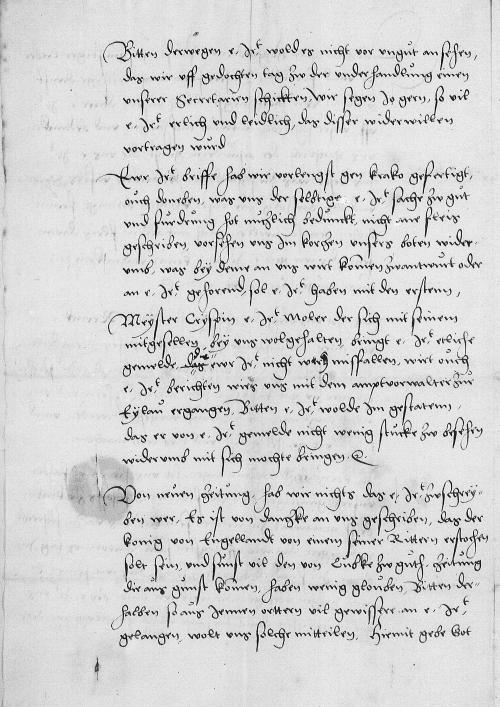 Bitten derwegen e. Irt. woldes nicht vor ungut ansehen,
das wir uff gedochten tag zw der underhandlung einen
unserer Secretarien schickten, wir segen Jo gern, so vil
e. Irt. erlich und leidlich, das disser widerwillen
vortragen wurd
Ewr Irt. briffe hab wir vorlengst gen krako gefertigt,
ouch doneben, was uns der selbtige e. Irt. sache zw gut
und furdrung hot nuczlich bedunckt, nicht ane fleis
geschriben, vorsehen uns Im korczen unsers boten wider-
umb, was bey deme an uns wirt komen zwantwurt oder
an e. Irt. gehorend, sol e. Irt. haben mit den ersten,
Meyster Cryspin e. Irt. moler der sich mit seinem
mitgesellen bey uns wolgehalten, bringt e. Irt. etliche
gemelde, ewr Irt. nicht missfallen, wirt ouch
e. Irt. berichten wies uns mit dem amptvorwalter zur
Eylau ergangen, Bitten e. Irt. wolde Im gestatenn,
das er von e. Irt. gemelde nicht wenig stucke zw besehen
widerumb mit sich mochte bringen &.
Von neuen zeitung, hab wir nichts das e. Irt. zuschrey-
ben wer, Es ist von danzke an uns geschriben, das der
konig von Engellandt von einem seiner Rittern erstochen
solt sein, und sunst vil den von Lubke zw guth. zeitung
die aus gunst komen, haben wenig glouben, Bitten der-
halben so aus Jennen oettern vil gewissere an e. Irt.
gelangen, wolt uns solche mitteilen, Hiemit gebe Got